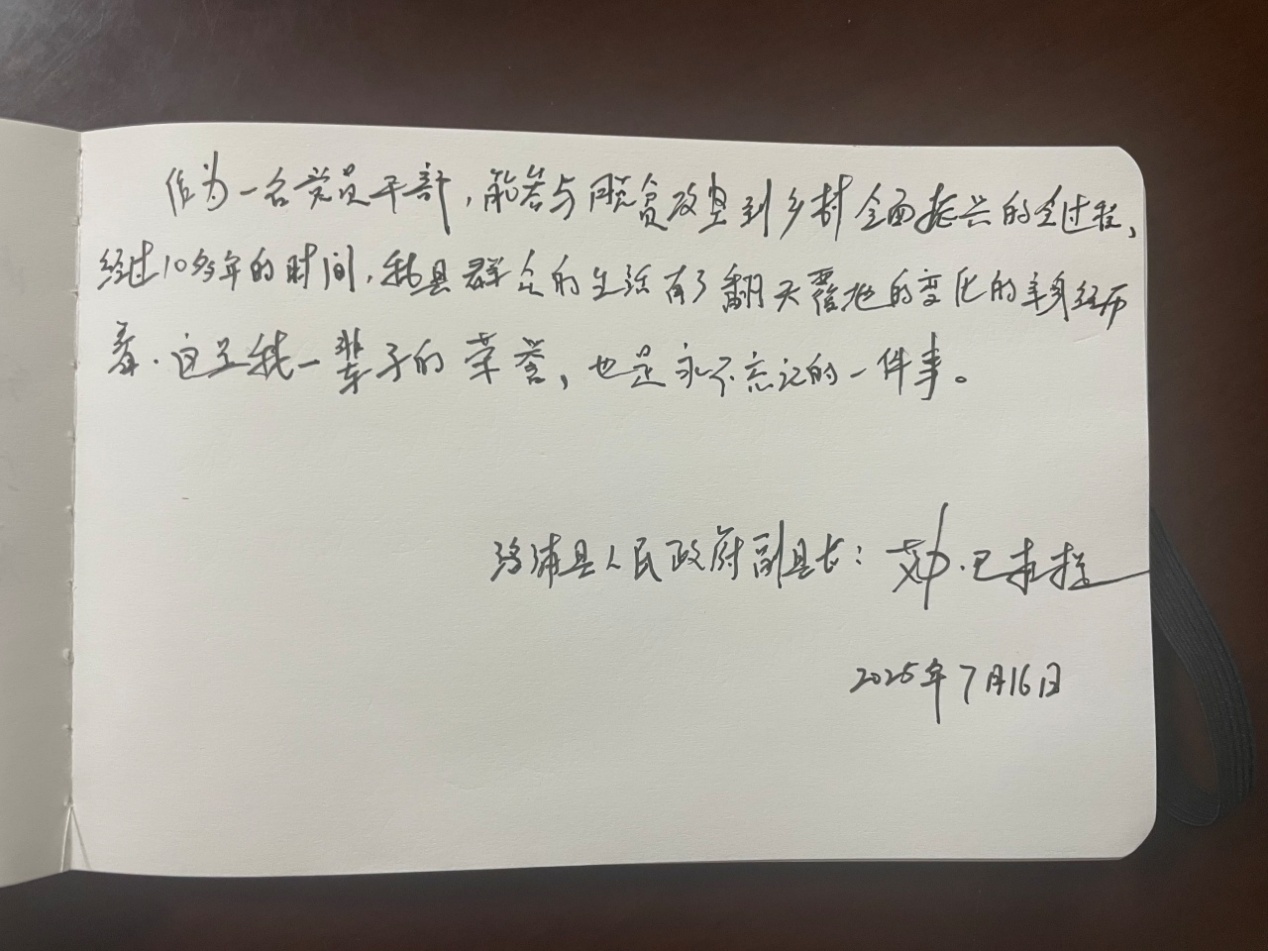 作为一名党员干部,能参与脱贫攻坚到乡村全面振兴的全过程,
经过10多年的时间,我县群众的生活有了翻天覆地的变化的亲身经历
者.这是我一辈子的荣誉,也是永不忘记的一件事。
洛浦县人民政府副县长:
2025年7月16日